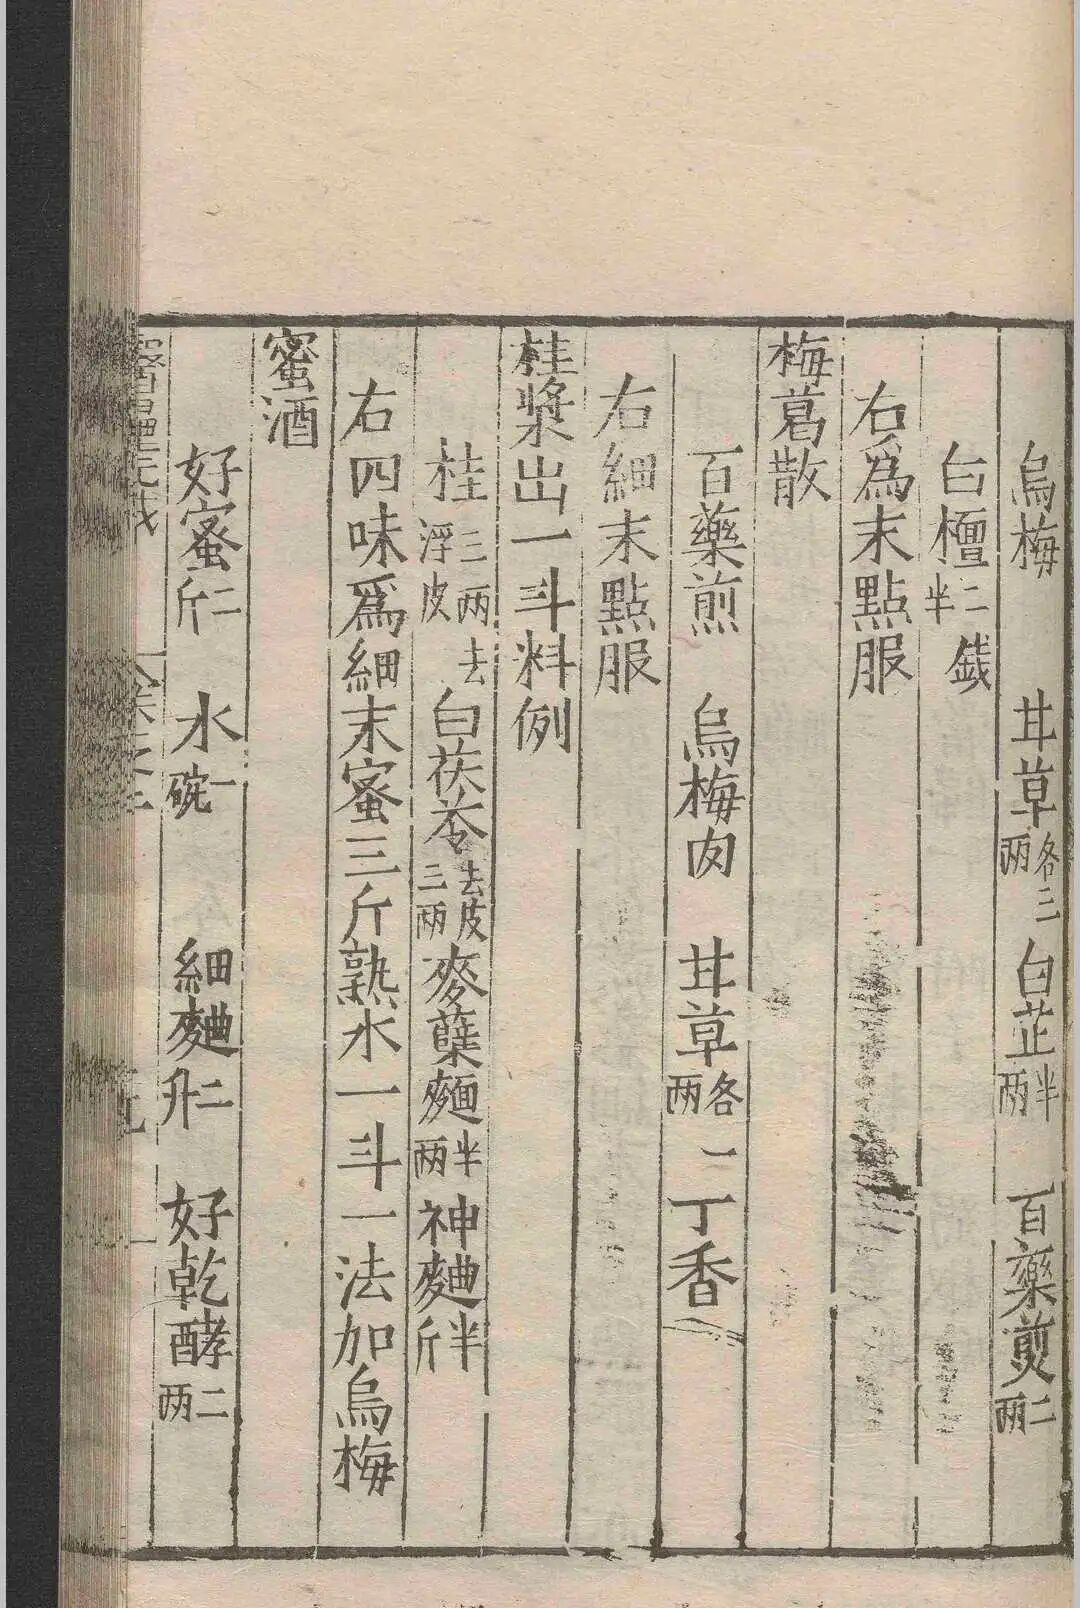 烏梅 甘草各三兩 白芷半兩 百藥煎二兩
白檀二錢半
右爲末點服
梅葛散
百藥煎 烏梅肉 甘草各一兩 丁香
右細末點服
桂漿出一斗料例
桂三兩去浮皮 白茯苓去皮三兩 麥糵麵半兩 神麯半斤
右四味爲細末蜜三斤熟水一斗一法加烏梅
蜜酒
好蜜二斤 水一碗 細麯二升 好乾酵二兩